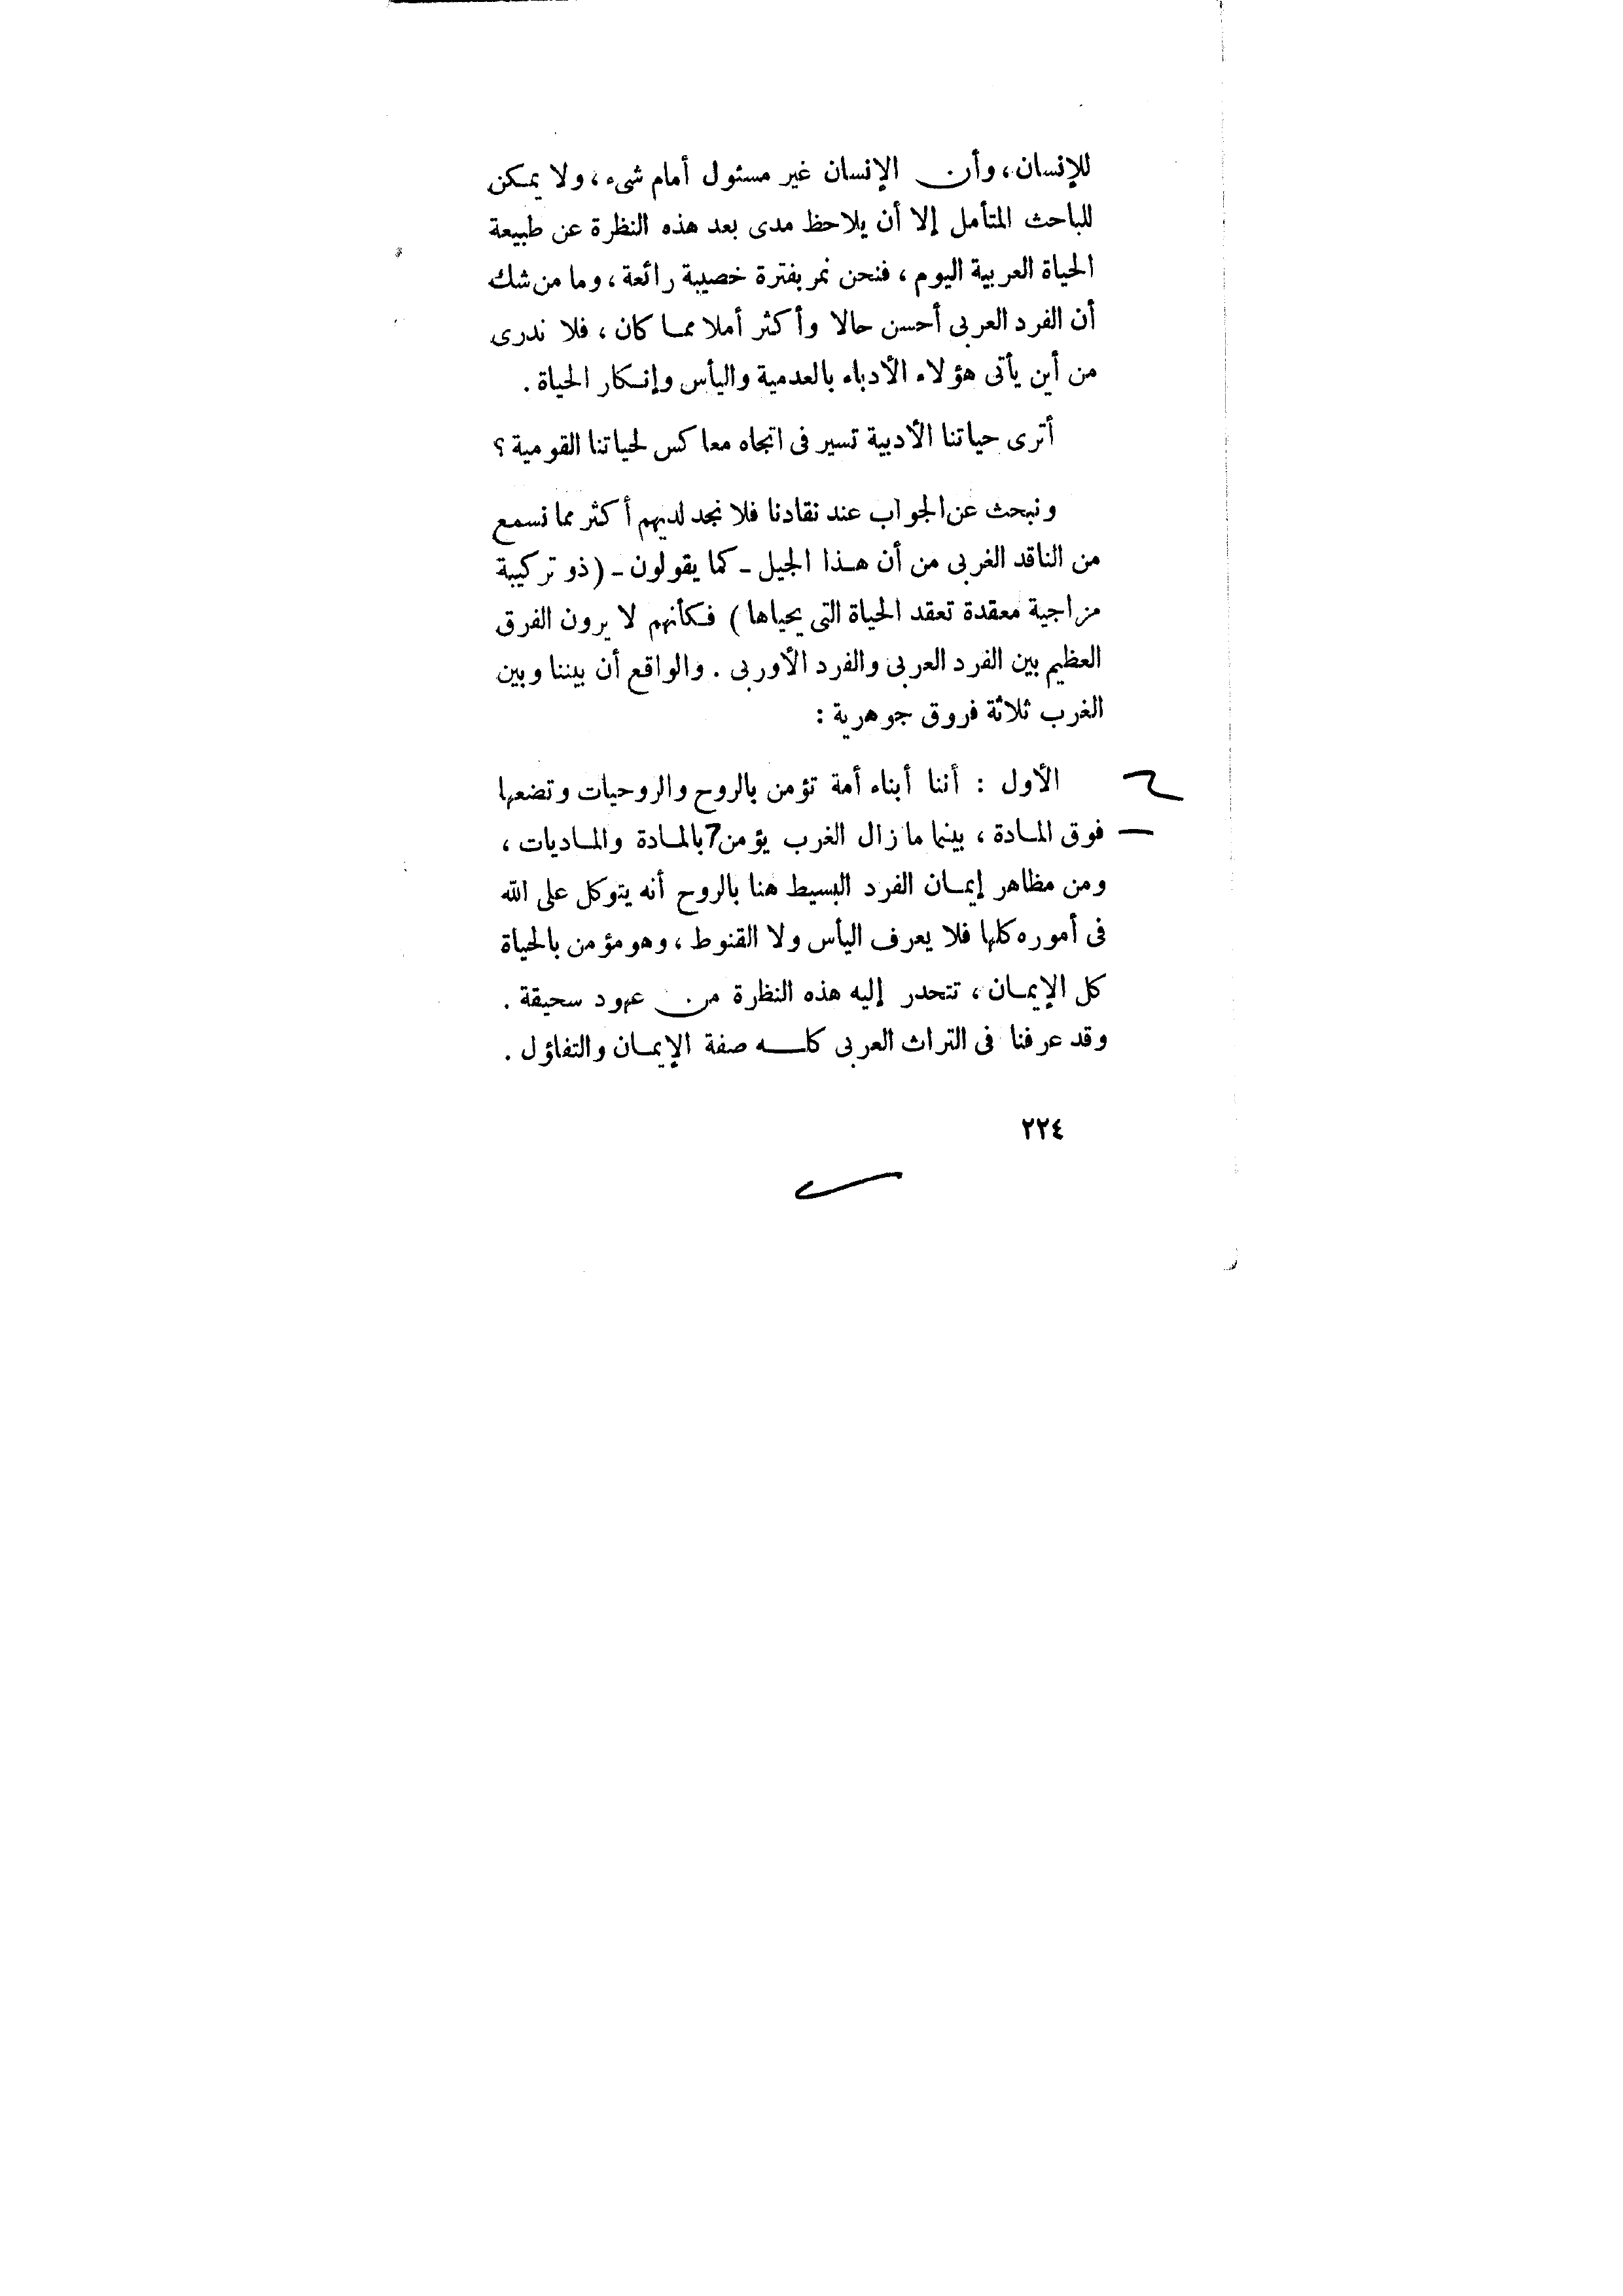 للإنسان، وأن الإنسان غير مسئول أمام شىء، ولا يمكن
للباحث المتأمل إلا أن يلاحظ مدى بعد هذه النظرة عن طبيعة
الحياة العربية اليوم، فنحن نمر بفترة خصيبة رائعة، وما من شك
أن الفرد العربى أحسن حالا وأكثر أملا مما كان، فلا ندرى
من أين يأتى هؤلاء الأدباء بالعدمية واليأس وإنكار الحياة.
أترى حياتنا الأدبية تسير فى اتجاه معاكس لحياتنا القومية؟
ونبحث عن الجواب عند نقادنا فلا نجد لديهم أكثر مما نسمع
من الناقد الغربى من أن هذا الجيل - كما يقولون - (ذو تركيبة
مزاجية معقدة تعقد الحياة التى يحياها) فكأنهم لا يرون الفرق
العظيم بين الفرد العربى والفرد الأوربى. والواقع أن بيننا وبين
الغرب ثلاثة فروق جوهرية:
الأول: أننا أبناء أمة تؤمن بالروح والروحيات وتضعها
فوق المادة، بينما ما زال الغرب يؤمن بالمادة والماديات،
ومن مظاهر إيمان الفرد البسيط هنا بالروح أنه يتوكل على الله
فى أموره كلها فلا يعرف اليأس ولا القنوط، وهو مؤمن بالحياة
كل الإيمان، تتحدر إليه هذه النظرة من عهود سحيقة.
وقد عرفنا فى التراث العربى كله صفة الإيمان والتفاؤل.
٢٢٤